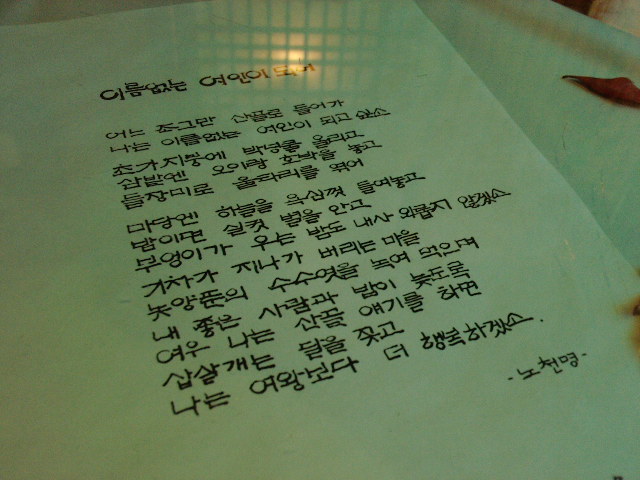 이름없는 여인이 되어
어느 조그만 산골로 들어가
나는 이름없는 여인이 되고 싶소
초가지붕에 박넝쿨 올리고
삼밭엔 오이랑 호박을 놓고
들장미로 울타리를 엮어
마당엔 하늘을 욕심껏 들여놓고
밤이면 실컷 별을 안고
부엉이가 우는 밤도 내사 외롭지 않겠소
기차가 지나가 버리는 마을
놋양푼의 수수엿을 녹여 먹으며
내 좋은 사람과 밤이 늦도록
여우 나는 산골 얘기를 하면
삽살개는 달을 짖고
나는 여왕보다 더 행복하겠소.
-노천명-